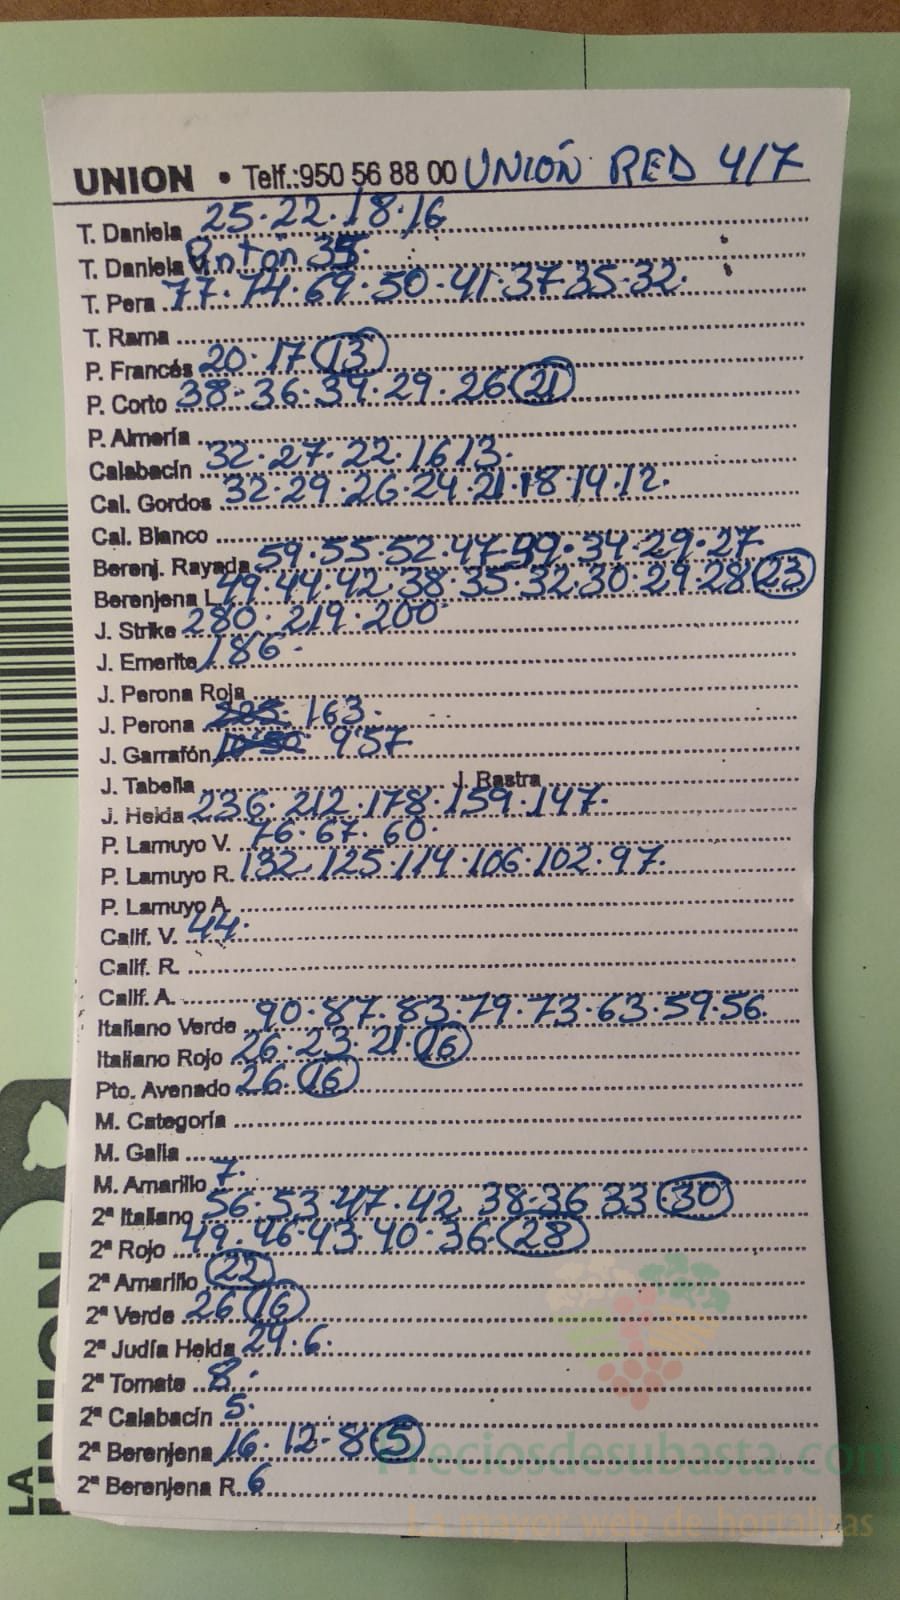 UNION • Telf.:950 56 88 00 UNIÓN RED 4/7
T. Daniela 25·22·18·16
T. Daniela V. Pintón 35·
T. Pera 77·74·69·50·41·37·35·32·
T. Rama
P. Francés 20·17 13
P. Corto 38·36·34·29·26 21
P. Almería
Calabacín 32·27·22·16 13·
Cal. Gordos 32·29·26·24·21·18·14·12·
Cal. Blanco
Berenj. Rayada 59·55·52·47·39·34·29·27
Berenjena L. 49·44·42·38·35·32·30·29·28 23
J. Strike 280·219·200
J. Emerite 186·
J. Perona Roja
J. Perona 163·
J. Garrafón 9'57
J. Tabella J. Rastra
J. Helda 236·212·178·159·147·
P. Lamuyo V. 76·67·60·
P. Lamuyo R. 132·125·114·106·102·97·
P. Lamuyo A.
Calif. V. 44·
Calif. R.
Calif. A.
Italiano Verde 90·87·83·79·73·63·59·56
Italiano Rojo 26·23·21· 16
Pto. Avenado 26· 16
M. Categoría
M. Galia
M. Amarillo 7·
2ª Italiano 56·53·47·42 38·36 33 30
2ª Rojo 49·46·43·40·36· 28
2ª Amarillo 22
2ª Verde 26 16
2ª Judía Helda 24·6·
2ª Tomate 8·
2ª Calabacín 5·
2ª Berenjena 16·12·8 5
2ª Berenjena R. 6
LA UNION
Preciosdesubasta.com
La mayor web de hortalizas